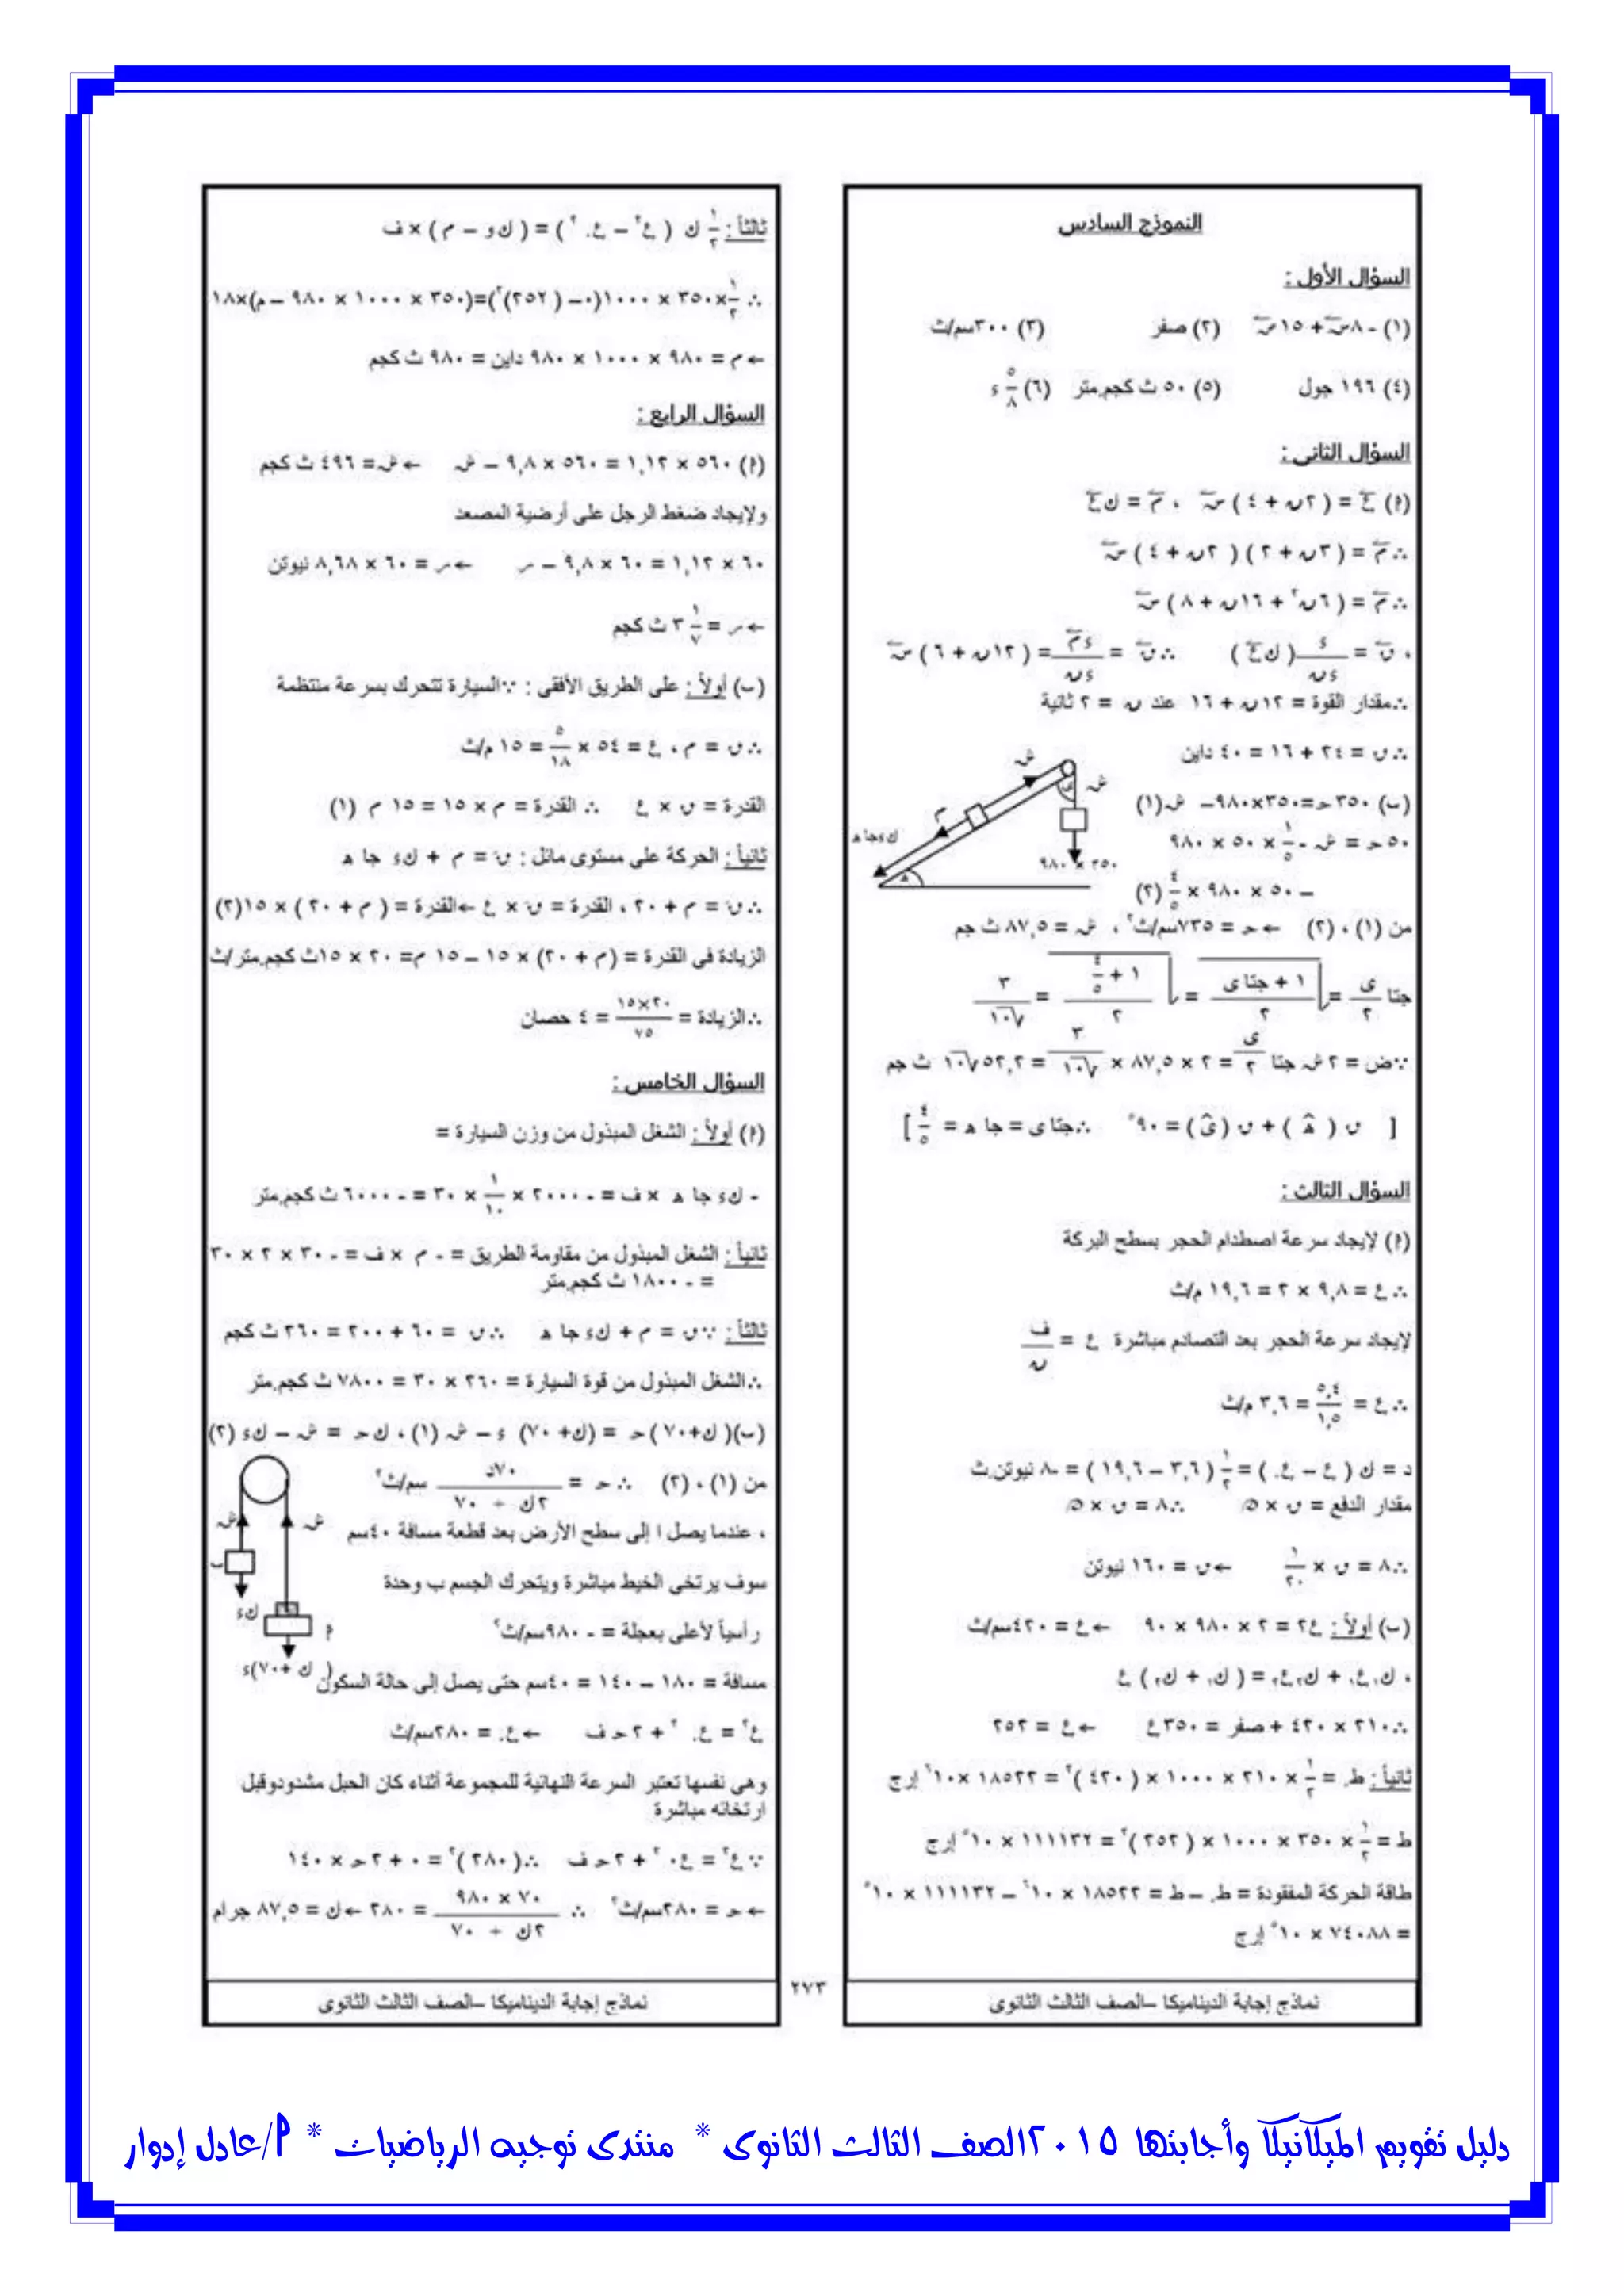 النموذج السادس
السؤال الأول :
(١) - ٨س + ١٥ص (٢) صفر (٣) ٣٠٠سم/ث
(٤) ١٩٦ جول (٥) ٥٠ ث كجم.متر (٦) ٥/٨ ء
السؤال الثانى :
(م) ع = ( ٢ن + ٤ ) س ، م = ك ع
∴ م = ( ٣ن + ٢ ) ( ٢ن + ٤ ) س
∴ م = ( ٦ن٢ + ١٦ن + ٨ ) س
، ق = ء/ءن ( ك ع ) ∴ ق = ءم/ءن = ( ١٢ن + ٦ ) س
∴ مقدار القوة = ١٢ن + ١٦ عند ن = ٢ ثانية
∴ ق = ٢٤ + ١٦ = ٤٠ داين
(ب) ٣٥٠حـ=٣٥٠×٩٨٠– ش(١)
٥٠حـ = ش - ١/٥ × ٥٠ × ٩٨٠
– ٥٠ × ٩٨٠ × ٤/٥ (٢)
ش
ش
ى
م
ك ء جا ه
ه
٣٥٠ × ٩٨٠
من (١) ، (٢) ← حـ = ٧٣٥سم/ث٢ ، ش = ٨٧,٥ ث جم
جتا ى/٢ = √((١ + جتا ى)/٢) = √((١ + ٤/٥)/٢) = ٣/√١٠
∵ض = ٢ش جتا ى/٢ = ٢ × ٨٧,٥ × ٣/√١٠ = ٥٢,٢√١٠ ث جم
[ ق ( ه ) + ق ( ى ) = ٩٠° ∴جتا ى = جا ه = ٤/٥ ]
السؤال الثالث :
(م) لإيجاد سرعة اصطدام الحجر بسطح البركة
∴ ع = ٩,٨ × ٢ = ١٩,٦ م/ث
لإيجاد سرعة الحجر بعد التصادم مباشرة ع = ف/ن
∴ ع = ٥,٤/١,٥ = ٣,٦ م/ث
د = ك ( ع – ع. ) = ١/٢ ( ٣,٦ – ١٩,٦ ) = -٨ نيوتن.ث
مقدار الدفع = ق × ن ∴ ٨ = ق × ن
∴ ٨ = ق × ١/٢٠ ← ق = ١٦٠ نيوتن
(ب) أولاً : ع٢ = ٢ × ٩٨٠ × ٩٠ ← ع = ٤٢٠سم/ث
، ك١ع١ + ك٢ع٢ = ( ك١ + ك٢ ) ع
∴ ٢١٠ × ٤٢٠ + صفر = ٣٥٠ع ← ع = ٢٥٢
ثانياً : ط. = ١/٢ × ٢١٠ × ١٠٠٠ × ( ٤٢٠ )٢ = ١٨٥٢٢ ×١٠٦ إرج
ط = ١/٢ × ٣٥٠ × ١٠٠٠ × ( ٢٥٢ )٢ = ١١١١٣٢ × ١٠٥ إرج
طاقة الحركة المفقودة = ط. – ط = ١٨٥٢٢ × ١٠٦ – ١١١١٣٢ × ١٠٥
= ٧٤٠٨٨ × ١٠٥ إرج
نماذج إجابة الديناميكا –الصف الثالث الثانوى
ثالثاً : ١/٢ ك ( ع٢ – ع.٢ ) = ( ك و – م ) × ف
∴ ١/٢×٣٥٠ × ١٠٠٠(٠– ( ٢٥٢)٢)=(٣٥٠ × ١٠٠٠ × ٩٨٠ – م)×١٨
← م = ٩٨٠ × ١٠٠٠ × ٩٨٠ داين = ٩٨٠ ث كجم
السؤال الرابع :
(م) ٥٦٠ × ١,١٢ = ٥٦٠ × ٩,٨ – ش ← ش= ٤٩٦ ث كجم
ولإيجاد ضغط الرجل على أرضية المصعد
٦٠ × ١,١٢ = ٦٠ × ٩,٨ – ر ← ر = ٦٠ × ٨,٦٨ نيوتن
← ر = ٣ ١/٧ ث كجم
(ب) أولاً : على الطريق الأفقى : ∵السيارة تتحرك بسرعة منتظمة
∴ ق = م ، ع = ٥٤ × ٥/١٨ = ١٥ م/ث
القدرة = ق × ع ∴ القدرة = م × ١٥ = ١٥ م (١)
ثانياً : الحركة على مستوى مائل : قَ = م + ك ء جا ه
∴ قَ = م + ٢٠ ، القدرة = قَ × ع ← القدرة = ( م + ٢٠ ) × ١٥(٢)
الزيادة فى القدرة = (م + ٢٠) × ١٥ – ١٥ م= ٢٠ × ١٥ث كجم.متر/ث
∴ الزيادة = ٢٠×١٥/٧٥ = ٤ حصان
السؤال الخامس :
(م) أولاً : الشغل المبذول من وزن السيارة =
- ك ء جا ه × ف = - ٢٠٠٠ × ١/١٠ × ٣٠ = - ٦٠٠٠ ث كجم.متر
ثانياً : الشغل المبذول من مقاومة الطريق = - م × ف = - ٣٠ × ٢ × ٣٠
= - ١٨٠٠ ث كجم.متر
ثالثاً : ∵ ق = م + ك ء جا ه ∴ ق = ٦٠ + ٢٠٠ = ٢٦٠ ث كجم
∴ الشغل المبذول من قوة السيارة = ٢٦٠ × ٣٠ = ٧٨٠٠ ث كجم.متر
(ب)( ك+٧٠ ) حـ = (ك+ ٧٠) ء – ش (١) ، ك حـ = ش – ك ء (٢)
من (١) ، (٢) ∴ حـ = ٧٠ء/(٢ك + ٧٠) سم/ث٢
، عندما يصل ا إلى سطح الأرض بعد قطعة مسافة ٤٠سم
سوف يرتخى الخيط مباشرة ويتحرك الجسم ب وحدة
رأسياً لأعلى بعجلة = - ٩٨٠سم/ث٢
مسافة = ١٨٠ – ١٤٠ = ٤٠سم حتى يصل إلى حالة السكون
ش
ش
ب
ك ء
م
( ك +٧٠)ء
ع٢ = ع.٢ + ٢حـ ف ← ع. = ٢٨٠سم/ث
وهى نفسها تعتبر السرعة النهائية للمجموعة أثناء كان الحبل مشدودوقبل
ارتخائه مباشرة
∵ ع٢ = ع.٢ + ٢حـ ف ∴ ( ٢٨٠ )٢ = ٠ + ٢حـ × ١٤٠
← حـ = ٢٨٠سم/ث٢ ∴ ٧٠ × ٩٨٠/(٢ك + ٧٠) = ٢٨٠ ← ك = ٨٧,٥ جرام
نماذج إجابة الديناميكا –الصف الثالث الثانوى
٢٧٣
دليل تقويم الميكانيكا وأجابتها ٢٠١٥ الصف الثالث الثانوى * منتدى توجيه الرياضيات * م/عادل إدوار